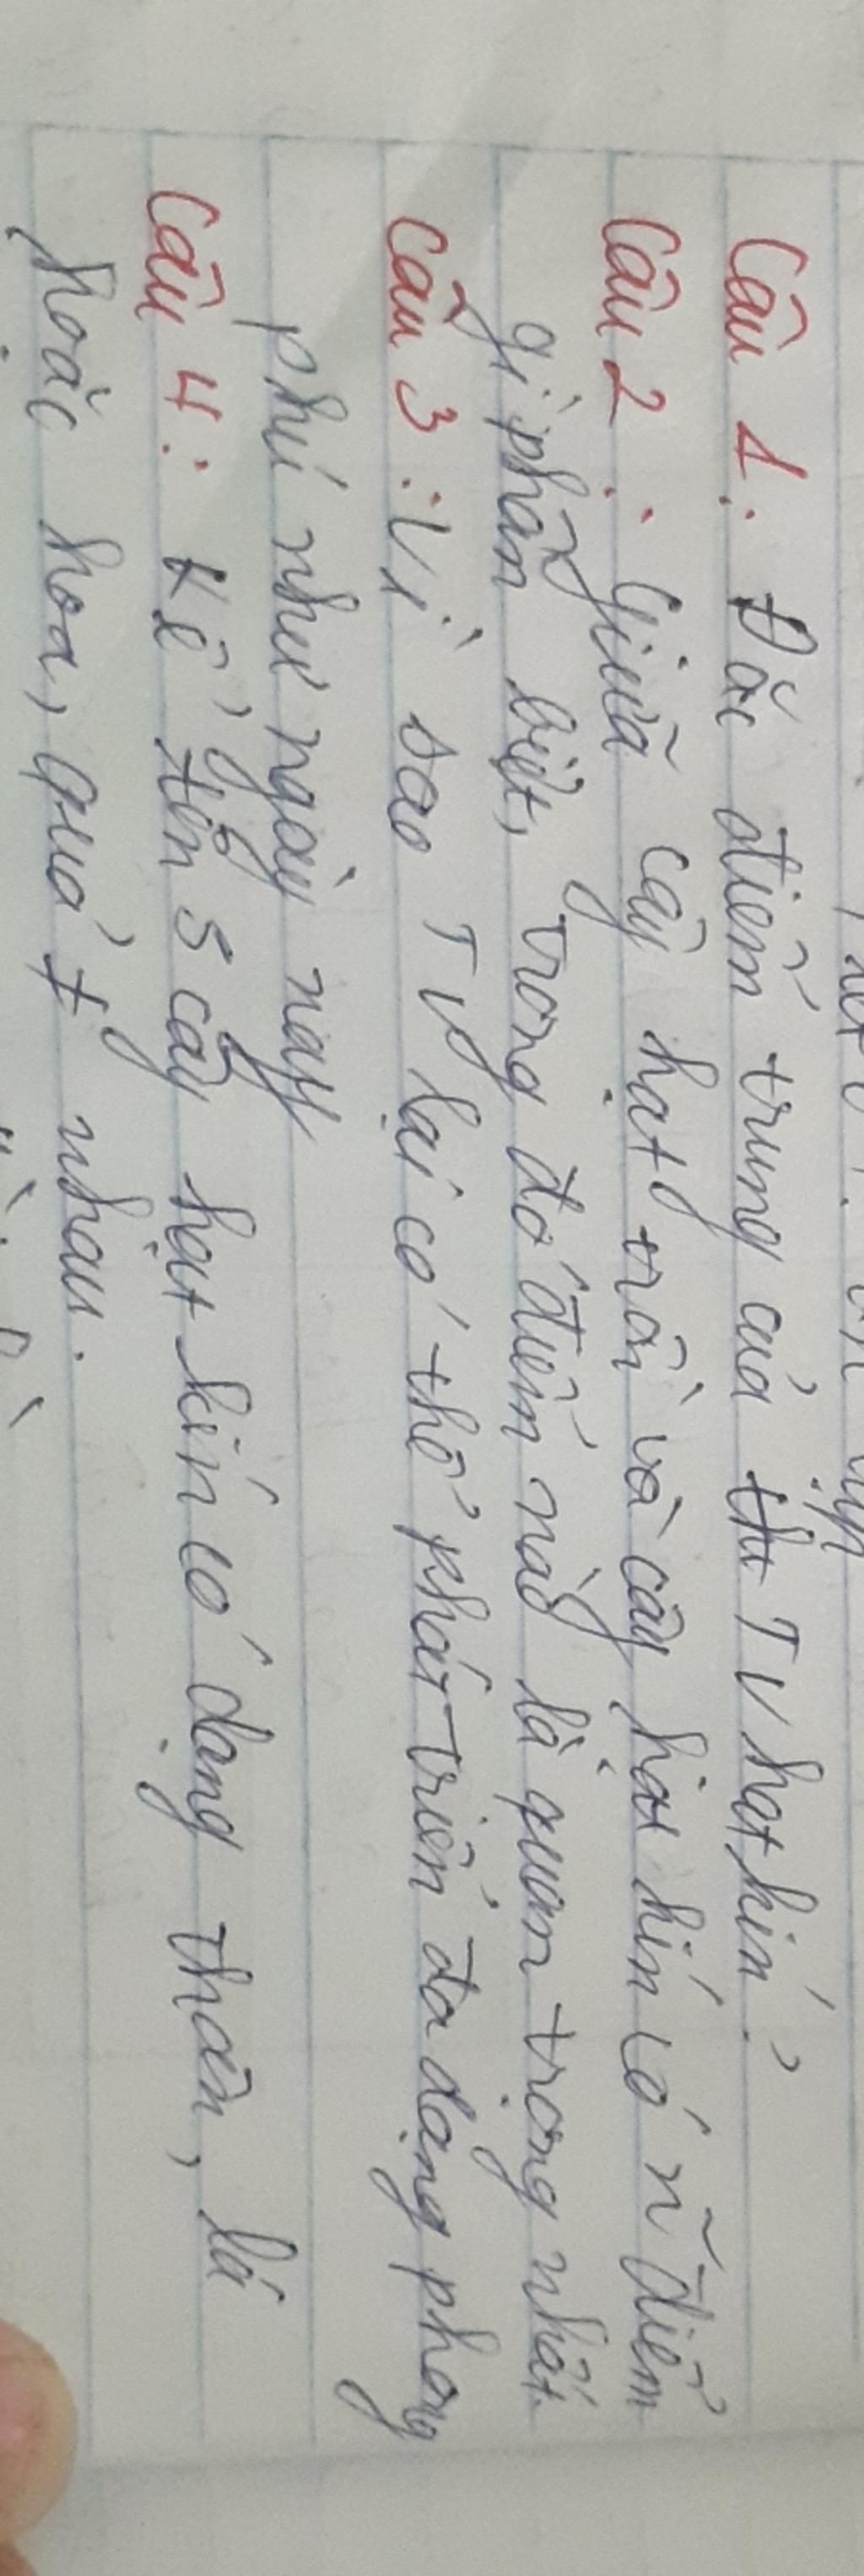 Câu 1: Đặc điểm trung của TV hạt kín?
Câu 2: Giữa cây hạt trần và cây hạt kín có n~ điểm
gì phân biệt, trong đó điểm nào là quan trọng nhất.
Câu 3: Vì sao TV lại có thể phát triển đa dạng phong
phú như ngày nay
Câu 4: Kể tên 5 cây hạt kín có dạng thân, lá
hoặc hoa, quả ≠ nhau.